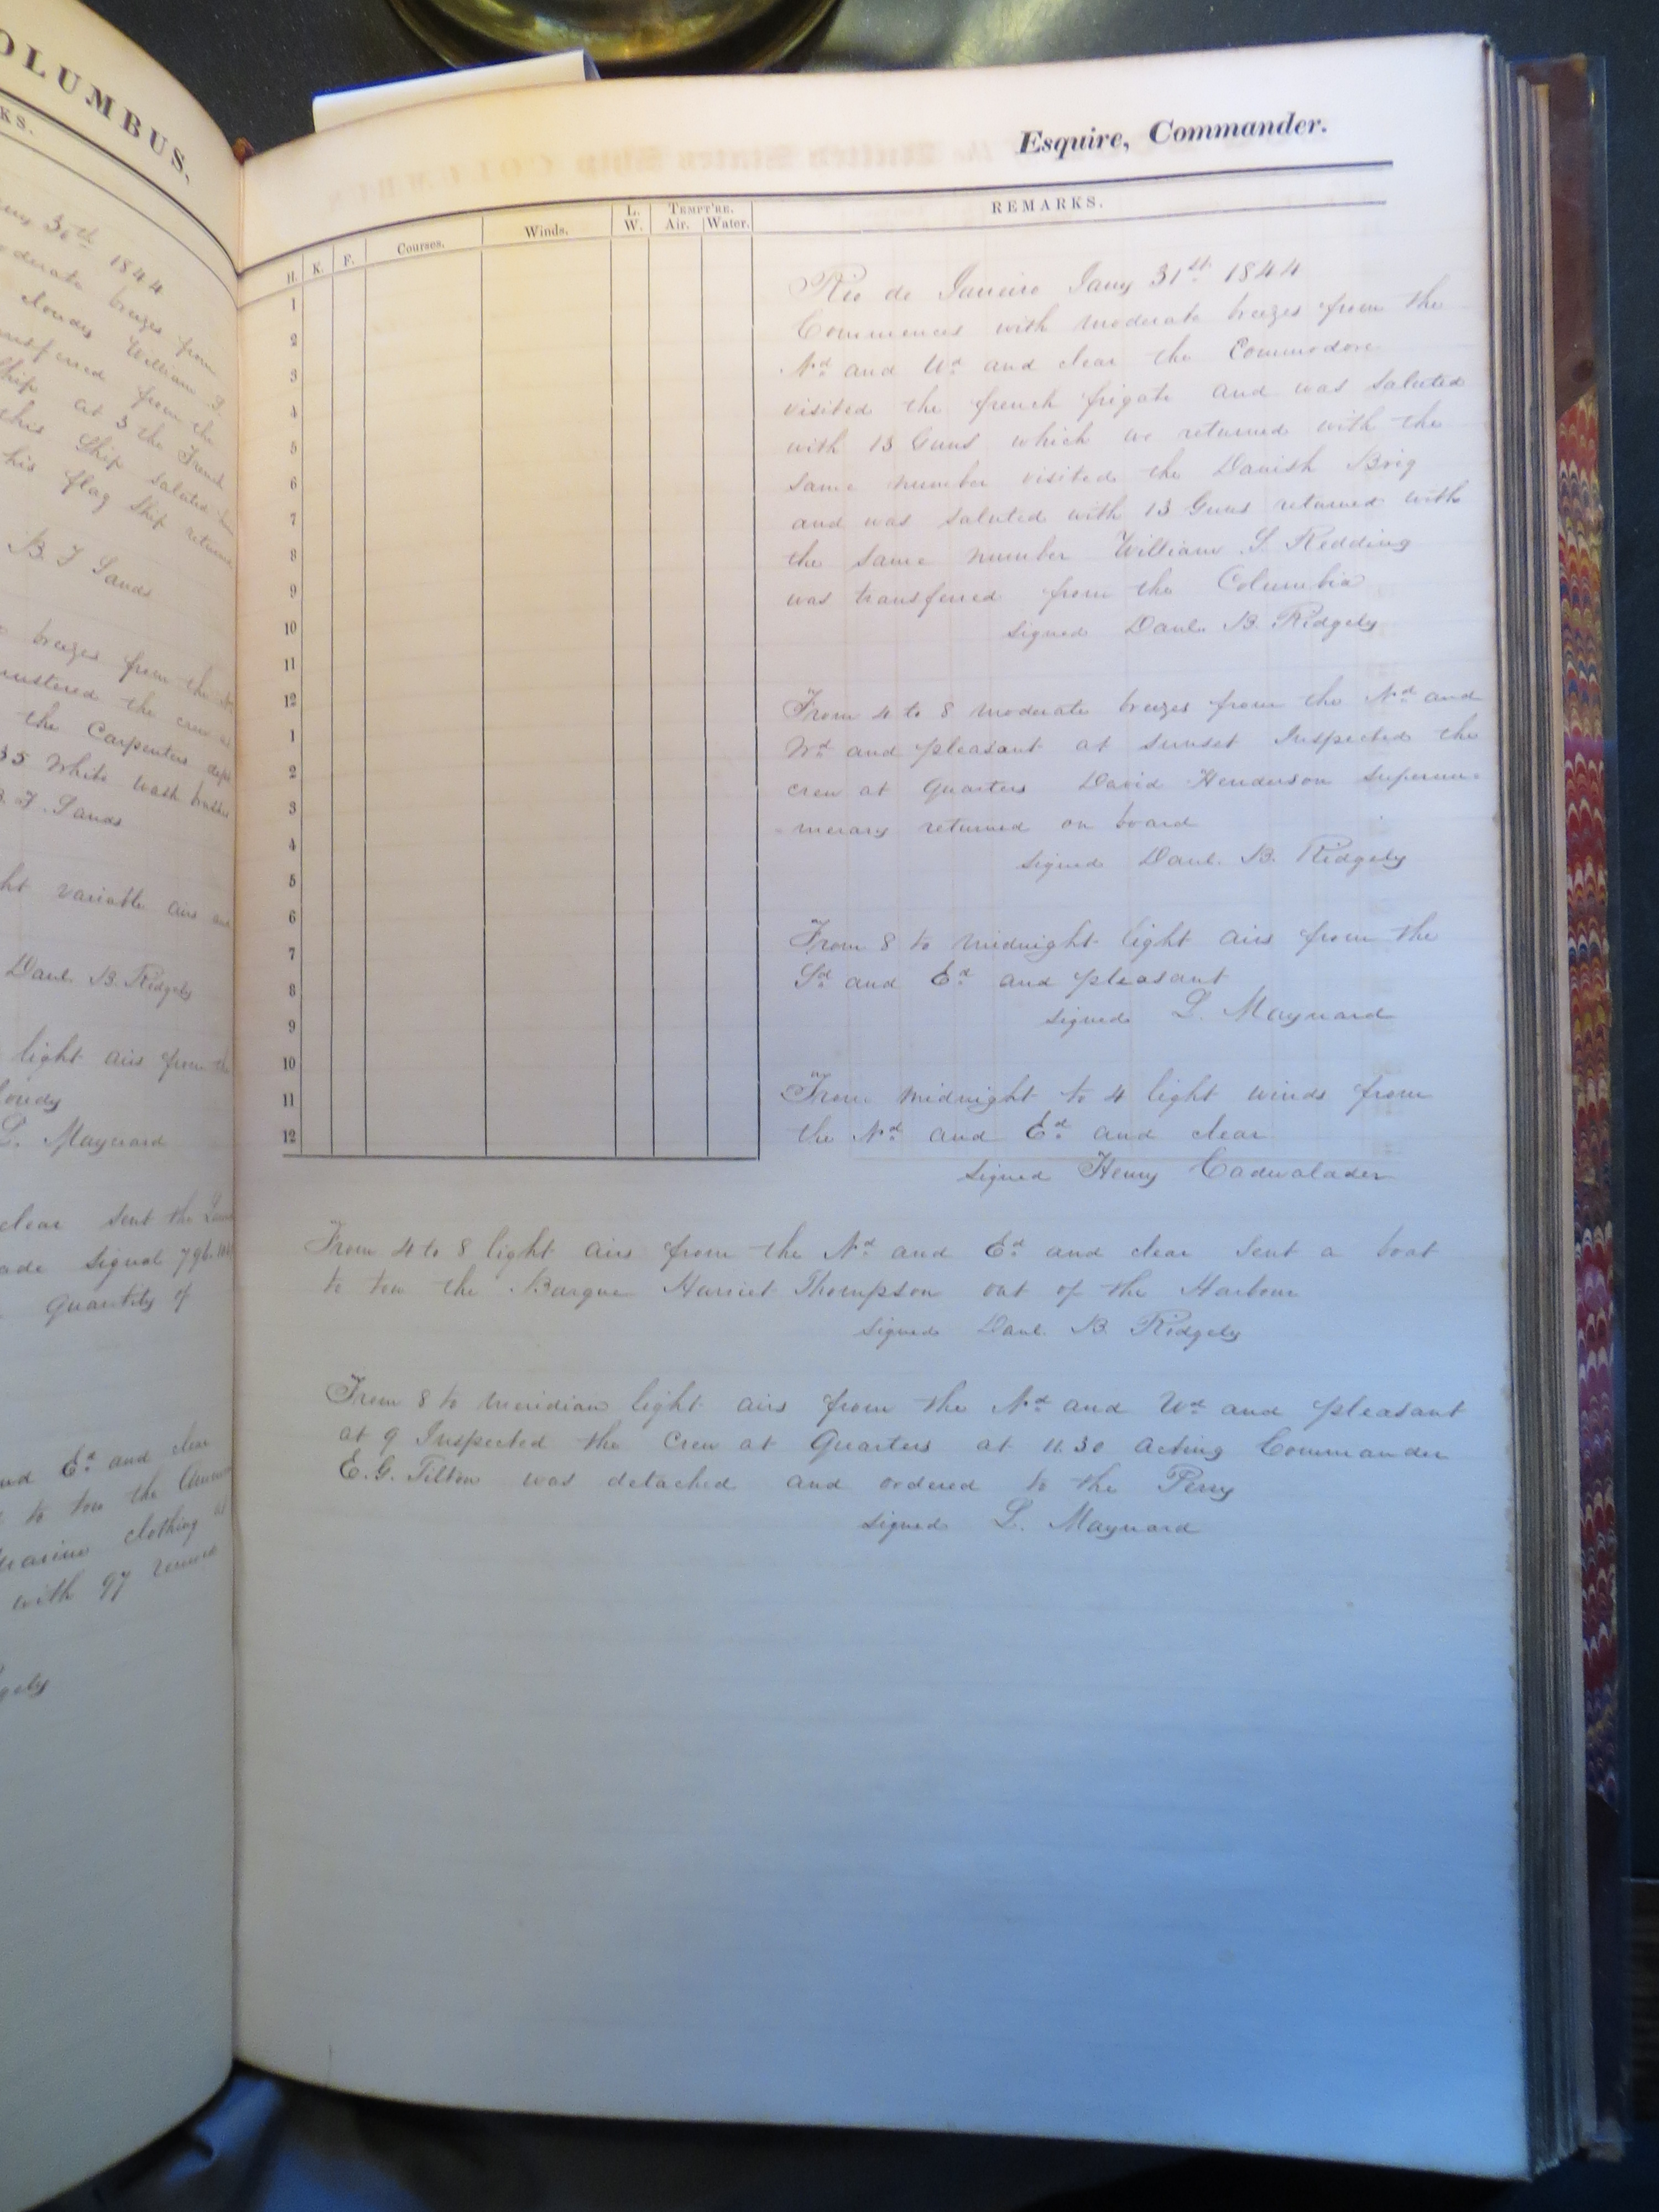 OLUMBUS,
KS.
30th 1844
moderate breezes from
cloudy William S.
transferred from the
Ship at 3 the French
this Ship saluted
his flag Ship returned
B F Sands
breezes from the
mustered the crew at
the Carpenters
35 White wash brushes
B. F. Sands
variable airs and
Danl. B. Ridgely
light airs from the
cloudy
L. Maynard
clear sent the
made signal
Quantity of
and Ed. and clear
to tow the
clothing
with 97
Esquire, Commander.
H. K. F. Courses. Winds. L. W. TEMPT'RE. Air. Water. REMARKS.
1
2
3
4
5
6
7
8
9
10
11
12
1
2
3
4
5
6
7
8
9
10
11
12
Rio de Janeiro Jany 31st. 1844
Commences with moderate breezes from the
Nd. and Wd. and clear the Commodore
visited the french frigate and was saluted
with 13 Guns which we returned with the
same number visited the Danish Brig
and was saluted with 13 Guns returned with
the same number William S Redding
was transferred from the Columbia
Signed Danl. B. Ridgely
From 4 to 8 moderate breezes from the Nd. and
Wd. and pleasant at sunset Inspected the
crew at Quarters David Henderson Supernu-
-merary returned on board
Signed Danl. B. Ridgely
From 8 to midnight light airs from the
Sd. and Ed. and pleasant
Signed L. Maynard
From midnight to 4 light winds from
the Nd. and Ed. and clear
Signed Henry Cadwalader
From 4 to 8 light airs from the Nd. and Ed. and clear Sent a boat
to tow the Barque Harriet Thompson out of the Harbour
Signed Danl. B. Ridgely
From 8 to meridian light airs from the Nd. and Wd. and pleasant
at 9 Inspected the Crew at Quarters at 11.30 Acting Commander
E.G. Tilton was detached and ordered to the Perry
Signed L. Maynard